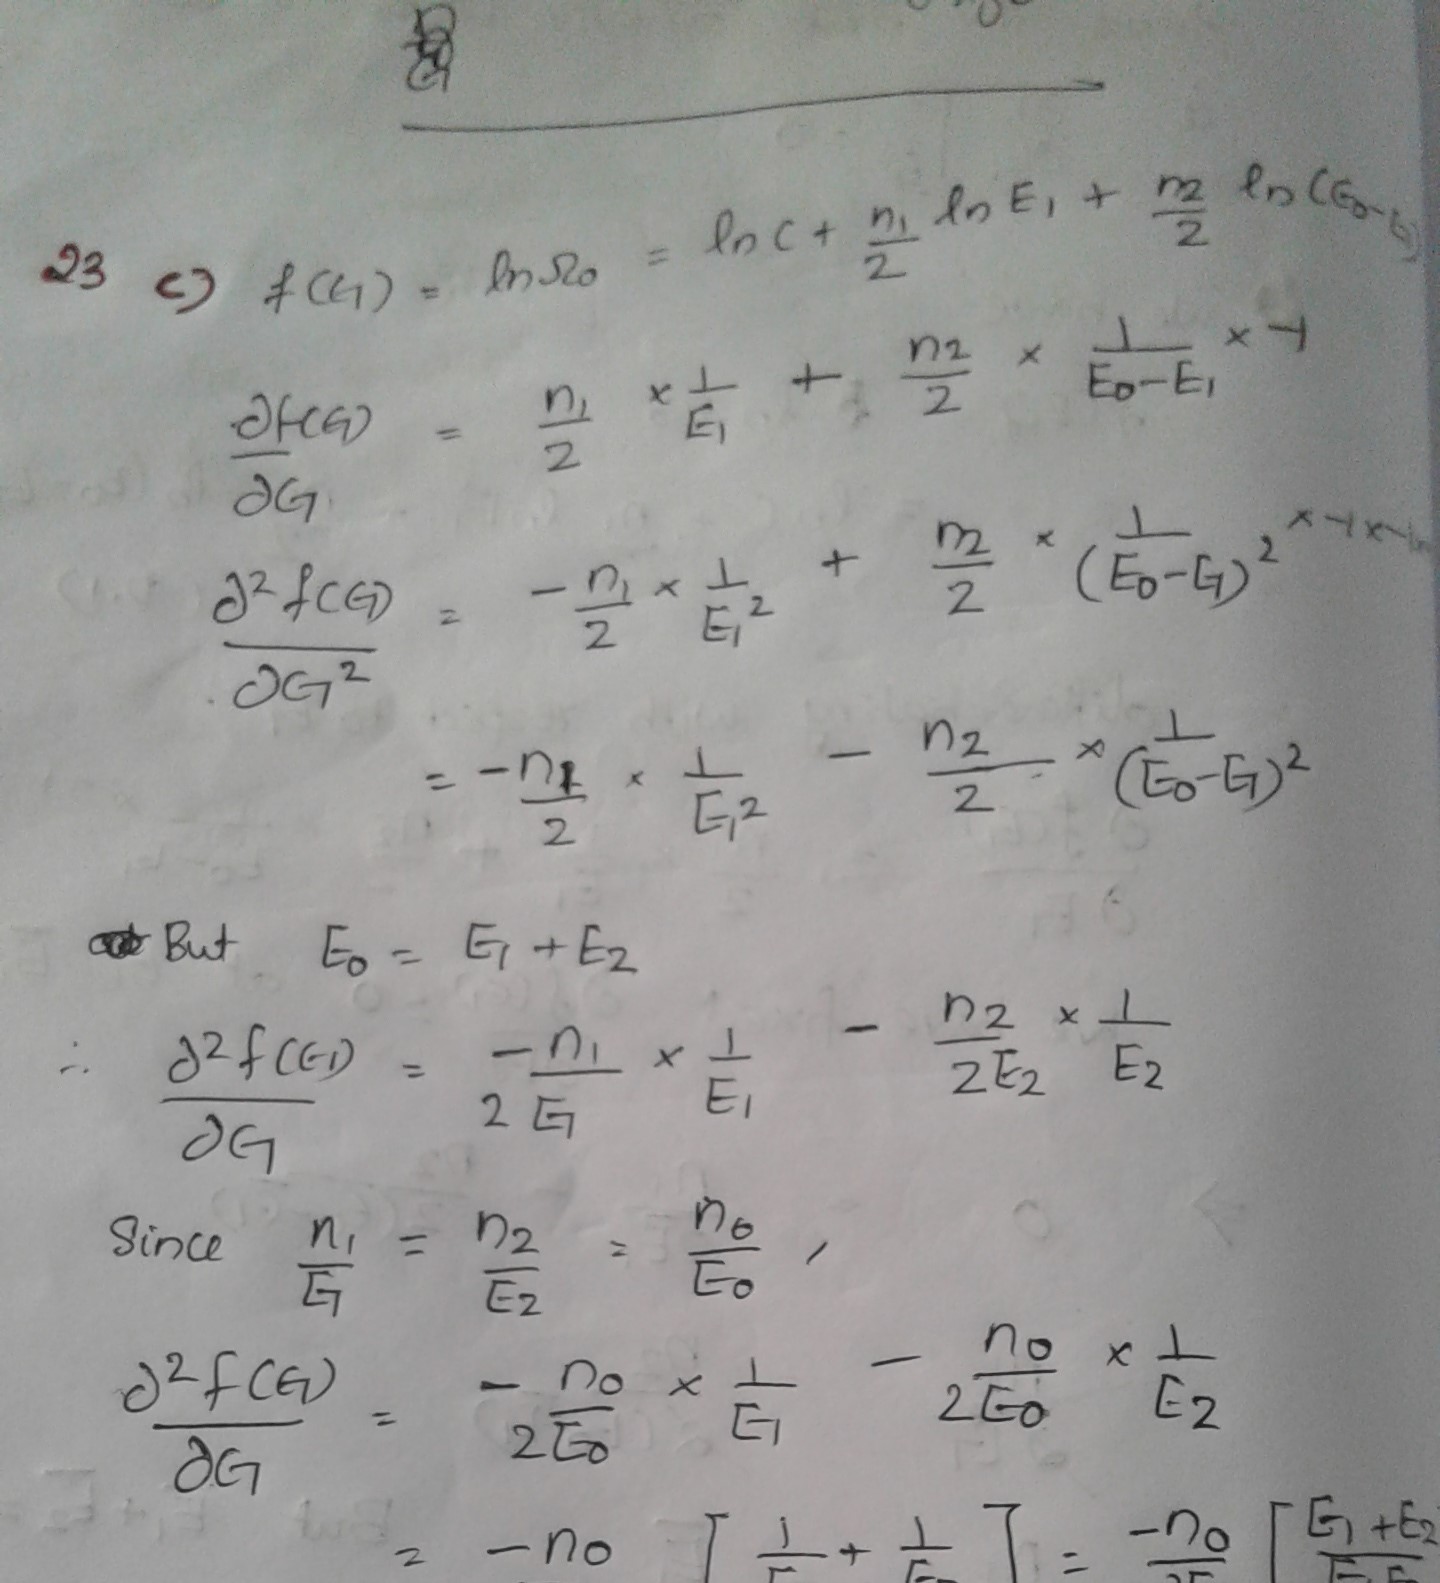 23 c) f(E1) = lnΩ0 = ln C + n1/2 ln E1 + n2/2 ln(E0-E1)
∂f(E1)/∂E1 = n1/2 × 1/E1 + n2/2 × 1/(E0-E1) × -1
∂²f(E1)/∂E1² = -n1/2 × 1/E1² + n2/2 × 1/(E0-E1)² × -1 ×
= -n1/2 × 1/E1² - n2/2 × 1/(E0-E1)²
But E0 = E1 + E2
∴ ∂²f(E1)/∂E1 = -n1/2E1 × 1/E1 - n2/2E2 × 1/E2
Since n1/E1 = n2/E2 = n0/E0,
∂²f(E1)/∂E1 = -n0/2E0 × 1/E1 - n0/2E0 × 1/E2
= -n0 [1/E + 1/E2] = -n0/2E [E1+E2/E1E